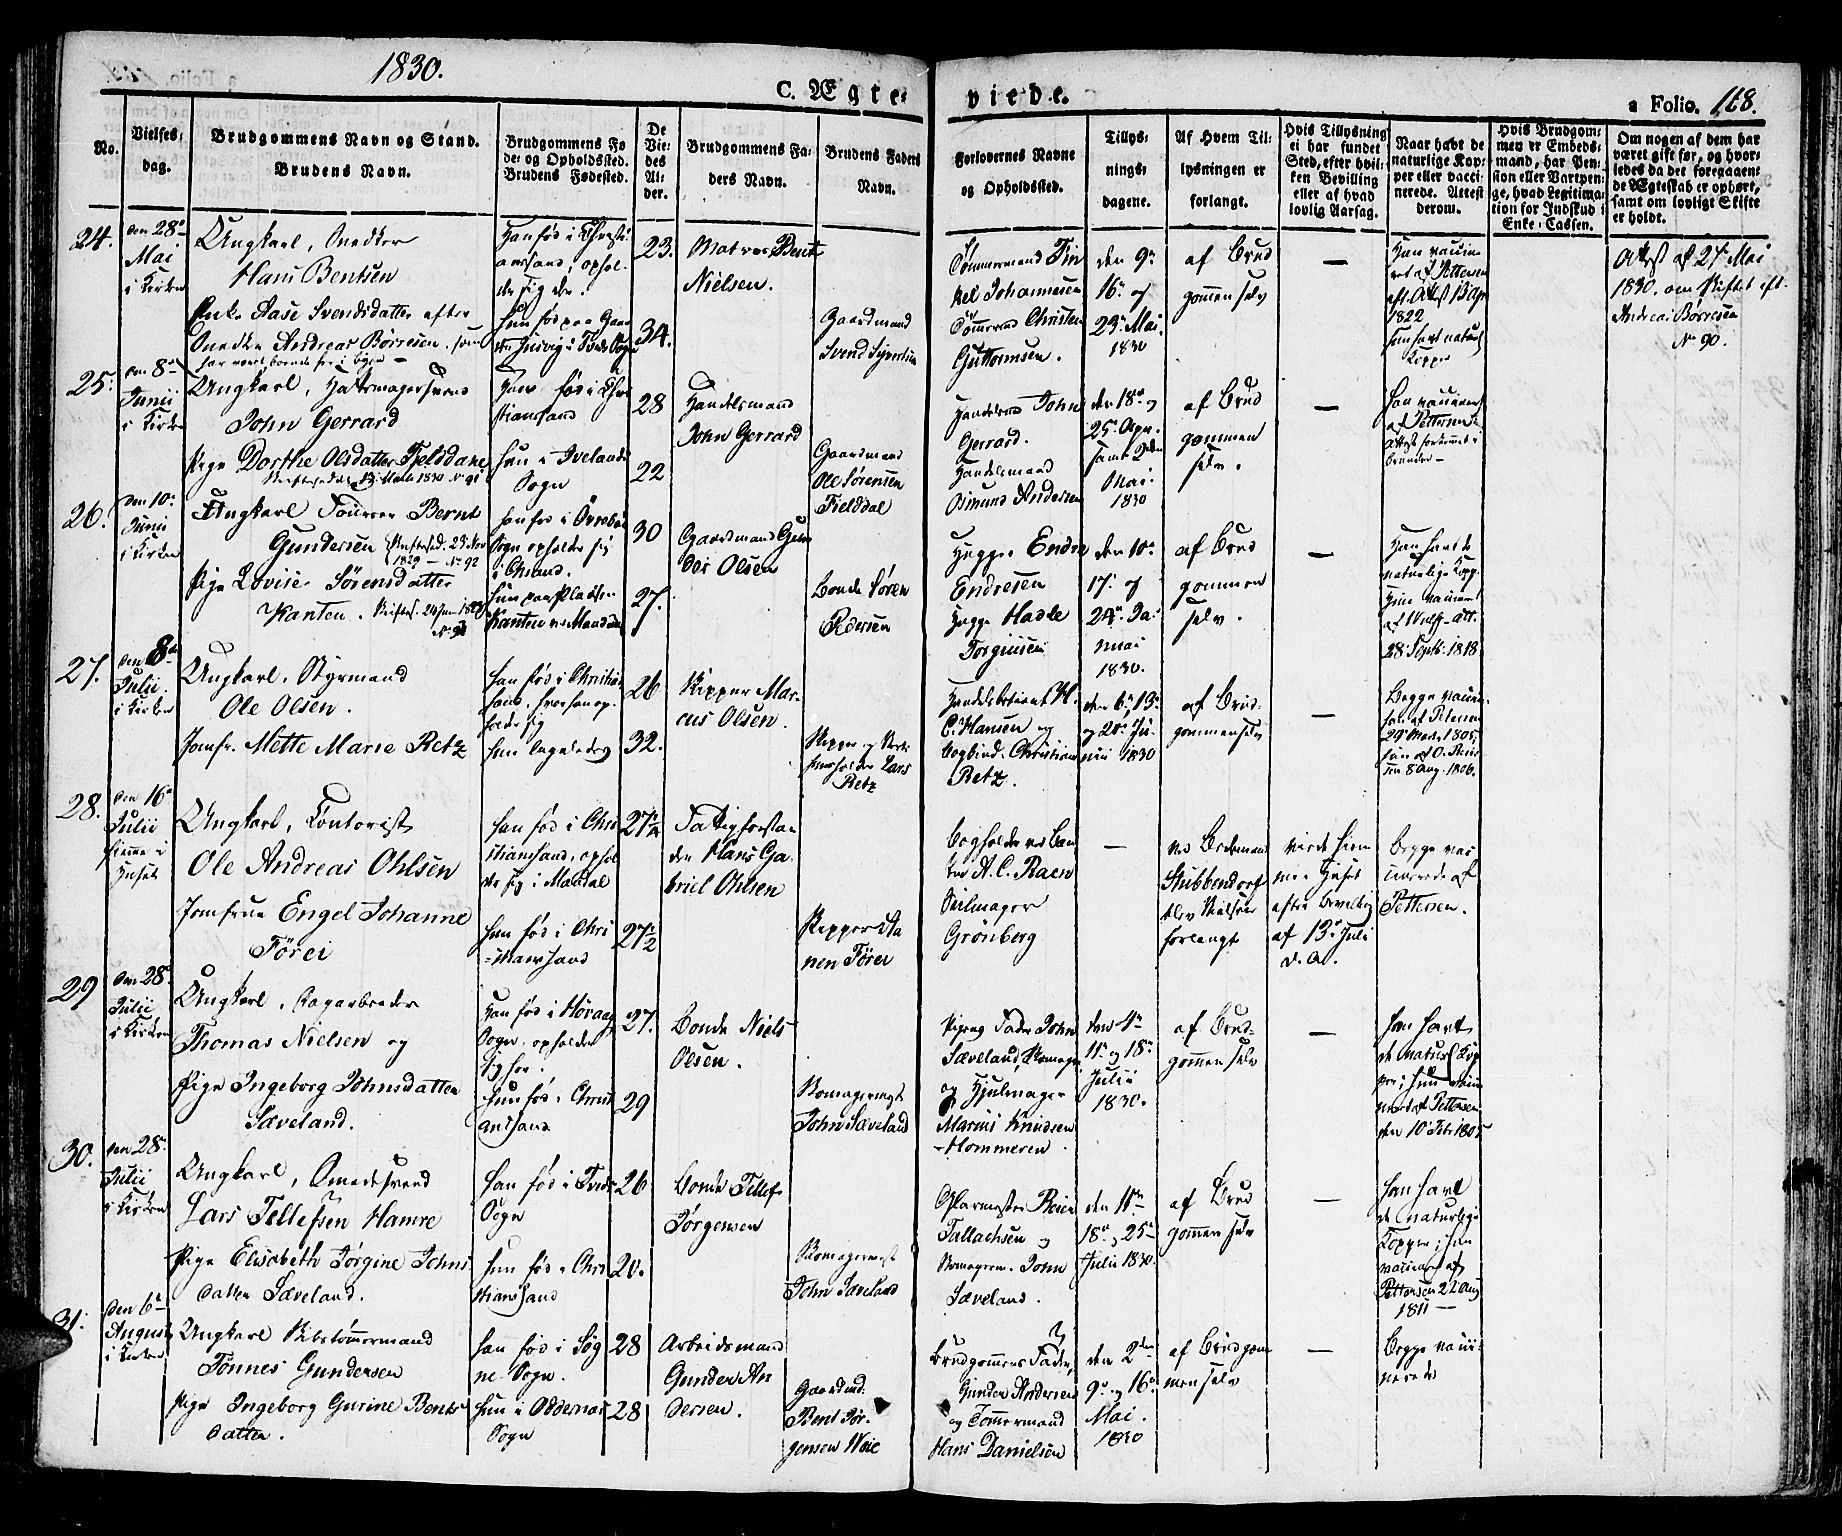 1830.
C. Ægte-
viede.
a Folio. 168.
No.
Vielses-
dag.
Brudgommens Navn og Stand.
Brudens Navn.
Brudgommens Fø
de- og Opholdssted.
Brudens Fødested.
De
Vie-
des
Al-
der.
Brudgommens Fa-
ders Navn.
Brudens Faders
Navn.
Forlovernes Navne
og Opholdssted.
Tillys-
nings-
dagene.
Af Hvem Til-
lysningen er
forlangt.
Hvis Tillysning
ei har fundet
Sted, efter hvil-
ken Bevilling
eller af hvad
lovlig Aarsag.
Naar havt de
naturlige Kop-
per eller vacci-
nerede. Attest
derom.
Hvis Brudgom-
men er Embeds-
mand, har Pen-
sion eller Vartpen-
ge, hvad Legitima-
tion for Indskud i
Enke-Cassen.
Om nogen af dem har
været gift før, og hvor-
ledes da det foregaaen-
de Ægteskab er ophørt,
samt om lovligt Skifte
er holdt.
24.
den 28de
Mai
i Kirken
Ungkarl, Snedker
Hans Bentsen
Enke Aase Svendsdatter efter
Snedker Andreas Børresen, som
har været boende her i byen
Han fød i Christi
ansand, ophol-
der sig der.
Hun fød paa Gaar
den Justvig i Tveds Sogn
23.
34.
Matros Bent
Nielsen.
Gaardmand
Svend Sivertsen
Tømmermand Tin
kel Johannesen
Tømmermd Christen
Guttormsen.
den 9de
16de og
23de Mai
1830
af Brud
gommen selv
—
Han vaccine
ret af Pettersen
eft. Attest 15 Apr
1822
Hun havt naturl
Kopper
Attest af 27 Mai
1830. om Skiftet eft.
Andreas Børresen
No 90.
25.
den 8de
Junii
i Kirken
Ungkarl, Hattemagersvend
John Gerrard
Pige Dorthe Olsdatter Fjeldsdane
Skiftesedel 13 Marts 1830 No 91
Han fød i Chri
stiansand
hun i Ivelands
Sogn
28
22
Handelsmand
John Gerrard
Gaardmand
Ole Sørensen
Fjelddal
Handelsmd John
Gerrard.
Handelsmand
Osmund Andersen
den 18de og
25de Apr.
samt 2den
Mai.
1830
af Brud
gommen
selv.
—
Han vaccineret
af Pettersen
26.
den 10de
Junii
i Kirken
Ungkarl Tourer Bernt
Gundersen Skiftesed. 23 Nov
1829 — No 92
Pige Lovise Sørensdatter
Kanten. Skiftes. 24 Jan 1829
No 93
han fød i Øvrebø
Sogn opholder sig
i Chsand.
Hun paa Pladsen
Kanten ved Mandal
30
27.
Gaardmand Gun
der Olsen
Bonde Søren
Pedersen
Hugger Endre
Endresen
Hugge Hadle
Torgiusen
den 10de
17de og
24de Ja-
nuar
1830.
af Brud
gommen
selv.
—
Han havt de
naturlige Kopp.
Hun vaccin
af Wulf- Att.
28 Septb: 1818
27.
den 8de
Julii.
i Kirken
Ungkarl, Styrmand
Ole Olsen.
Jomfr. Mette Marie Retz
han fød i Christian
sand, hvor han op-
holder sig
hun ligeledes
26
32.
Skipper Mar-
cus Olsen.
Skipper og Verts
huusholder Lars
Retz
Handelsbetient H.
C. Hansen og
Bogbind. Christian
Retz.
den 6te, 13de
og 20de Ju-
nii 1830
af Brud-
gommen selv
—
Begge vaccin-
han af Petersen
29de Marts 1805,
hun af O. Reier
sen 8 Aug. 1806.
28.
den 16de
Julii
hiemme i
Huset
Ungkarl, Contorist
Ole Andreas Ohlsen
Jomfrue Engel Johanne
Törei
han fød i Chri
stiansand, ophol
der sig i Mandal
hun fød i Chri
stiansand
27½
27½
Fattigforstan
der Hans Ga-
briel Ohlsen
Skipper Sta
nen Törei
Bogholder ved Ban
ken A. C. Raen
Seilmager
Grönberg
—
ved Ordemand
Stubbendorf
blev Vielsen
forlangt
viede hiem
me i Huset
efter bevilling
af 13de Juli
d. A.
Begge vac
cinerede af
Pettersen.
29
den 28de
Julii
i Kirken
Ungkarl, Sagarbeider
Thomas Nielsen og
Pige Ingeborg Johnsdatter
Sæveland.
Han fød i Høvaag
Sogn, opholder
sig her.
Hun fød i Christi
ansand
27.
29
Bonde Niels
Olsen.
Skomagermest
John Sæveland
Pigens Fader John
Sæveland, Skomager
og Hjulmager
Marius Knudsen
Hommeren.
den 4de
11te og 18de
Julii
1830.
af Brud-
gommen selv
—
han havt
de naturl Kop
per; hun vaccin
nered af Pettersen
den 10 Feb 1805
30.
den 28de
Julii
i Kirken
Ungkarl, Smedesvend
Lars Tellefsen Hamre
Pige Elisabeth Jørgine Johns
datter Sæveland.
han fød i Tveds
Sogn
hun fød i Chri
stiansand
26
20.
Bonde Tellef
Jørgensen
Skomagermest
John Sæveland
Glarmester Reier
Tallachsen og
Skomagerm. John
Sæveland.
den 11te
18de og 25de
Julii 1830.
af Brud
gommen selv
—
han havt
de naturlige
Kopper; hun
vaccineret af
Pettersen 22 Aug
1811 —
31.
den 6te
August
i Kirken
Ungkarl Skibstømmermand
Tönnes Gundersen
Pige Ingeborg Gurine Bents
datter.
han fød i Søg
ne Sogn.
hun i Oddernes
Sogn
28
28
Arbeidsmand
Gunder An
dersen.
Gaardmd.
Bent Jør-
gensen Weie
Brudgommens Fader,
Gunder Andersen
og Tømmermand
Hans Danielsen
den 2den
9de og 16de
Mai.
1830
af Brudgom
men selv
—
Begge vacci-
nerede